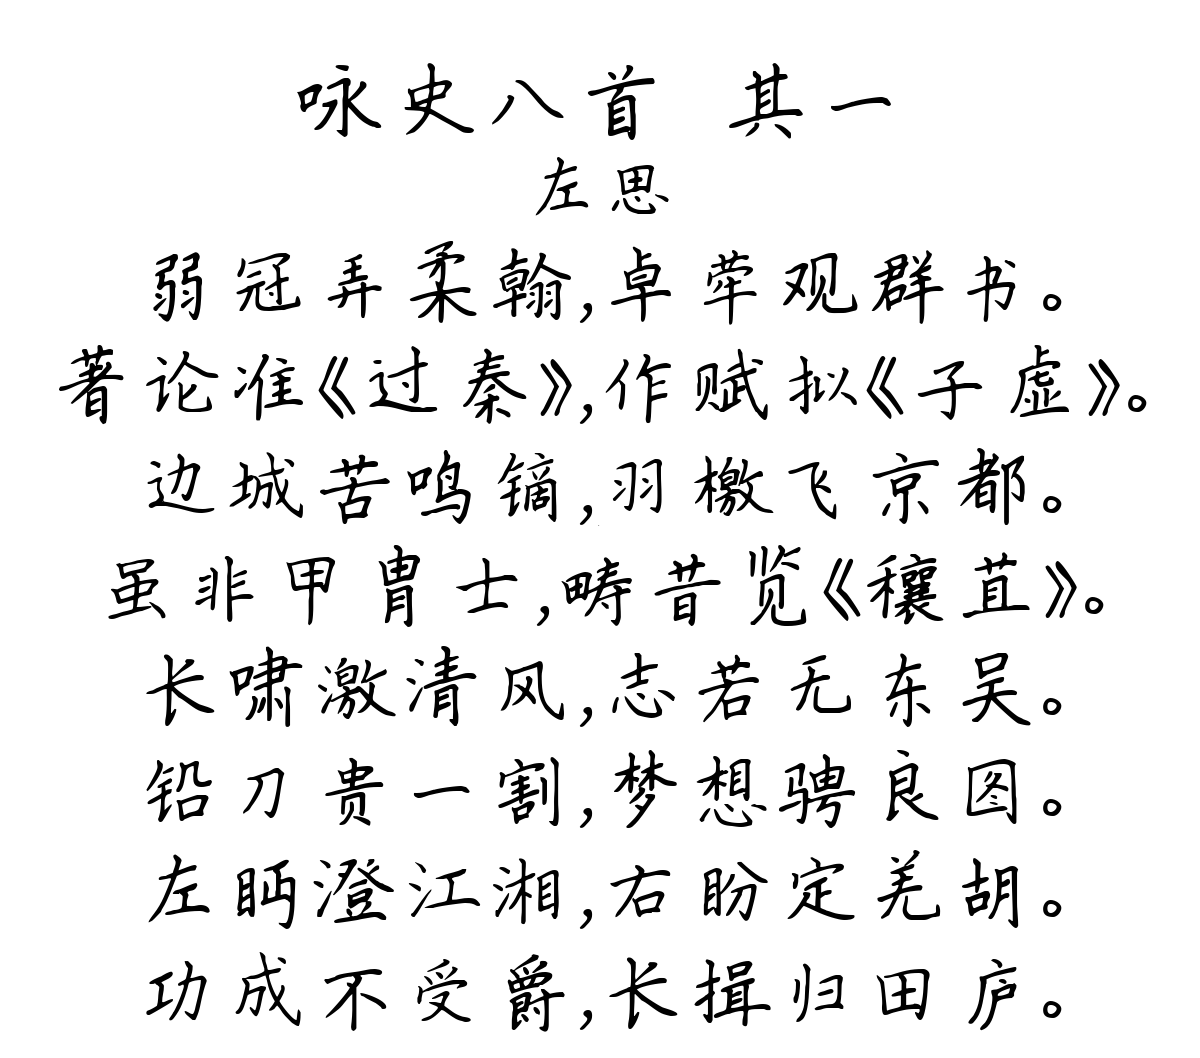 咏史八首 其一
左思
弱冠弄柔翰,卓荦观群书。
著论准《过秦》,作赋拟《子虚》。
边城苦鸣镝,羽檄飞京都。
虽非甲胄士,畴昔览《穰苴》。
长啸激清风,志若无东吴。
铅刀贵一割,梦想骋良图。
左眄澄江湘,右盼定羌胡。
功成不受爵,长揖归田庐。